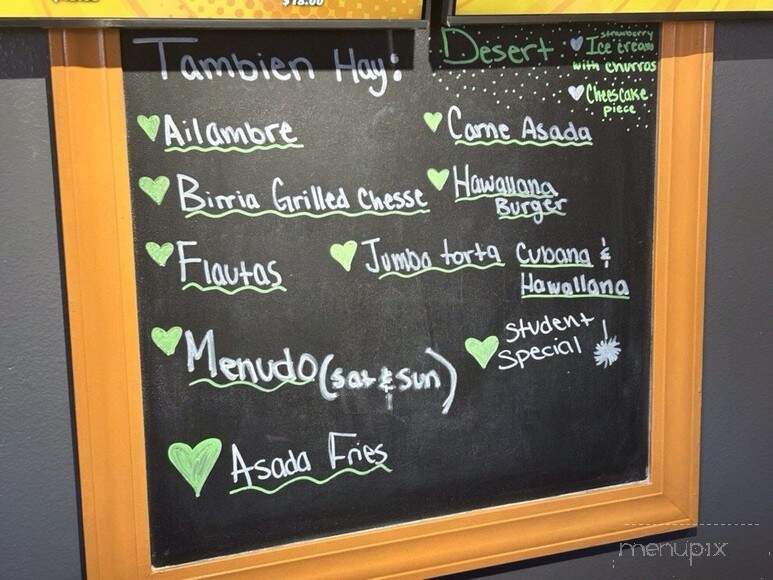 $18.00
Tambien Hay:
Desert
strawberry
Ice cream
with churros
Cheescake
piece
Ailambre
Carne Asada
Birria Grilled Chesse
Hawallana
Burger
Flautas
Jumbo torta Cubana &
Hawallana
Menudo (sat & sun)
student
special !
Asada Fries
menupix